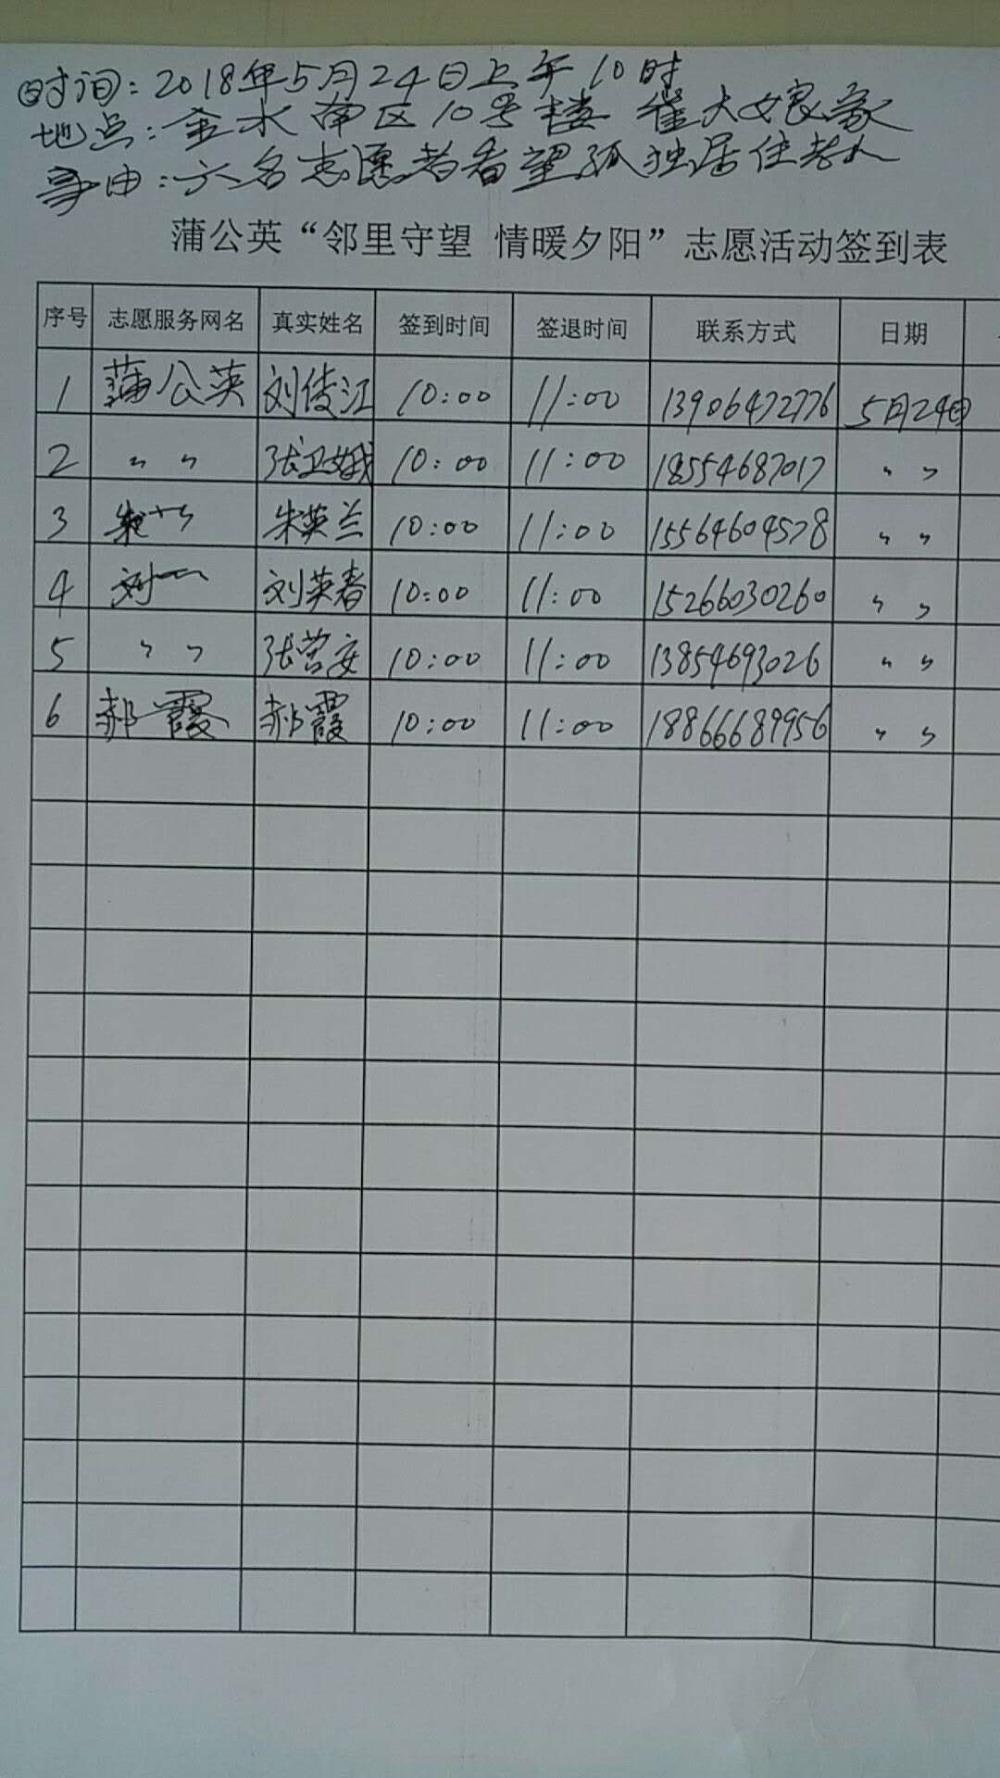 时间：2018年5月24日上午10时
地点：金水南区10号楼 崔大娘家
事由：六名志愿者看望孤独居住老人
蒲公英“邻里守望 情暖夕阳”志愿活动签到表
序号 志愿服务网名 真实姓名 签到时间 签退时间 联系方式 日期
1 蒲公英 刘俊江 10:00 11:00 13906472776 5月24日
2 〃 〃 张卫娥 10:00 11:00 18554687017 〃 〃
3 朱英兰 10:00 11:00 15564604578 〃 〃
4 刘英春 10:00 11:00 15266030260 〃 〃
5 〃 〃 张营安 10:00 11:00 13854693026 〃 〃
6 郝霞 郝霞 10:00 11:00 18866689956 〃 〃